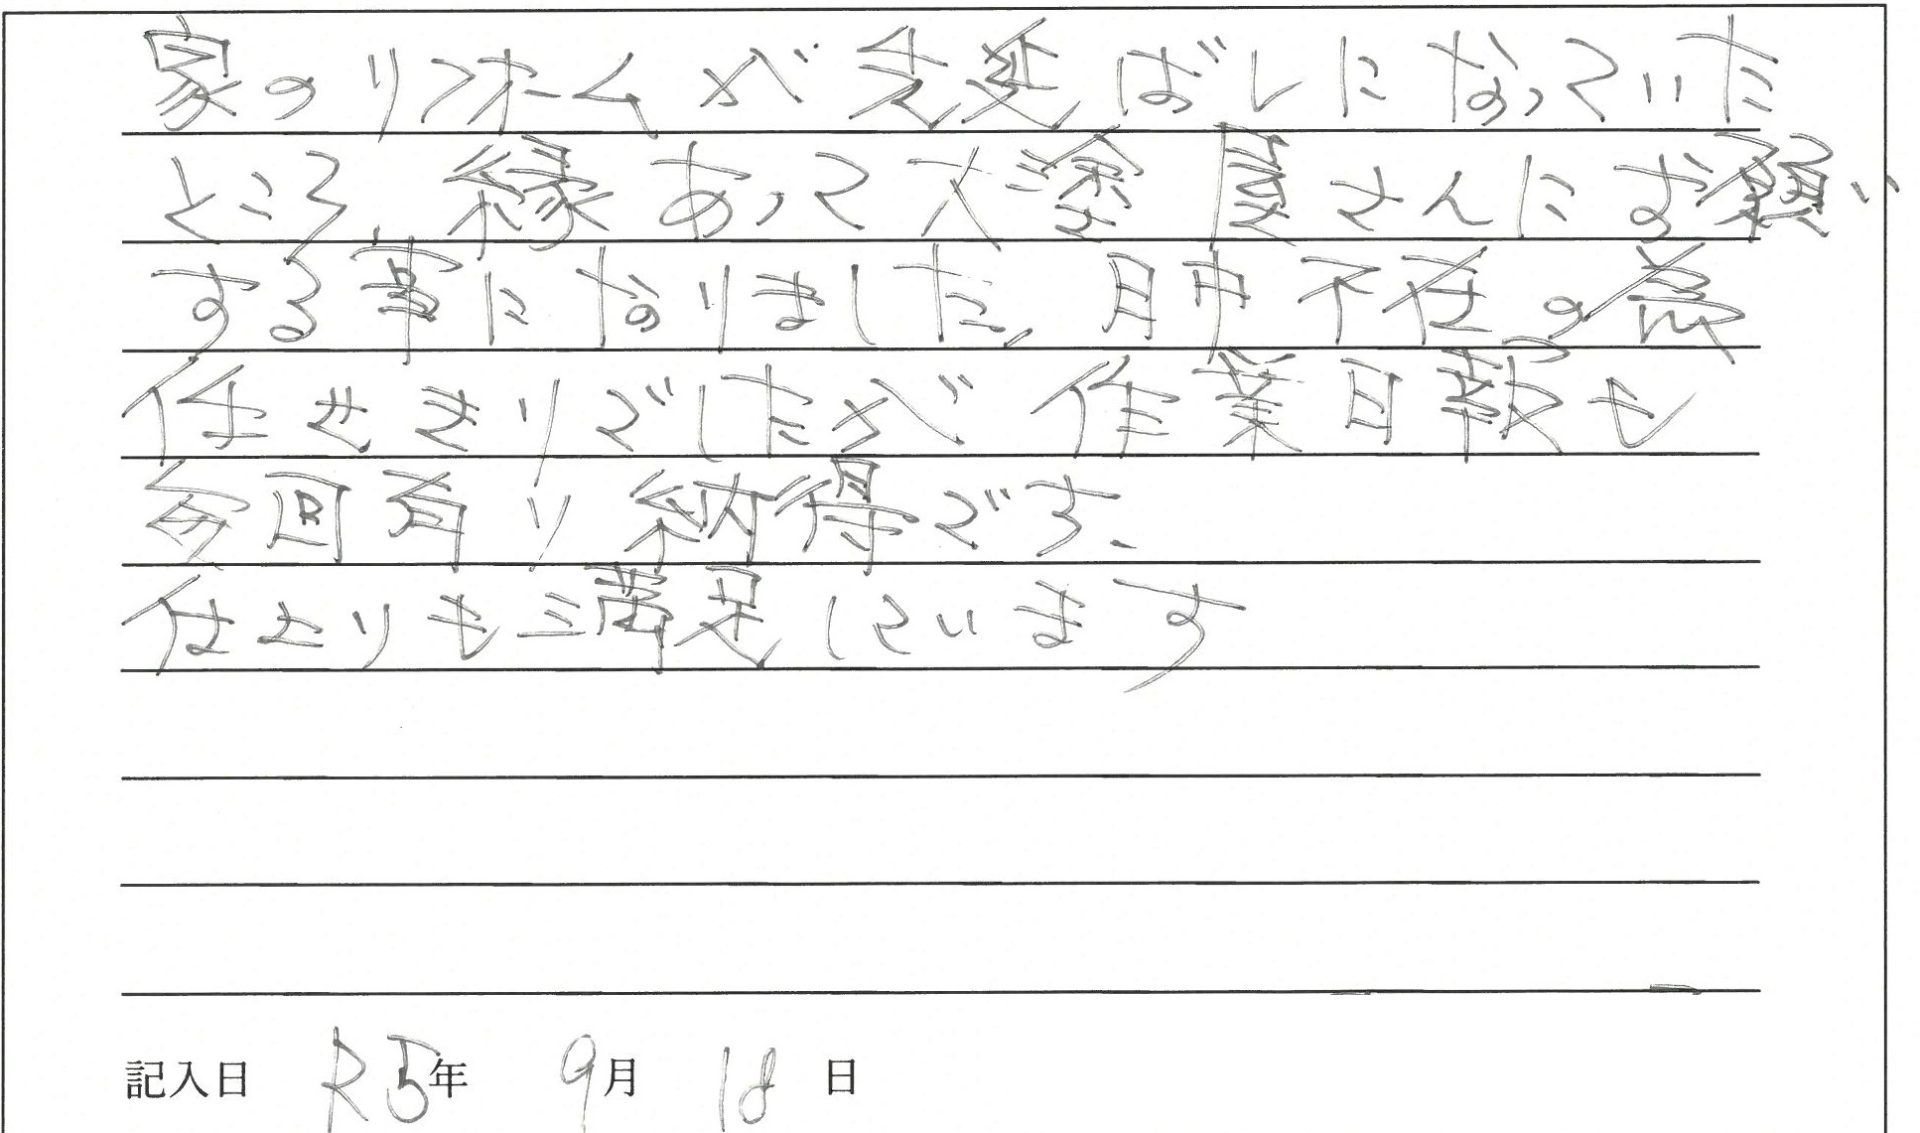 家のリフォームが先延ばしになっていた
ところ、縁あって大塗屋さんにお願い
する事になりました、日中不在の為
任せきりでしたが作業日報も
毎回有り納得です、
仕上りも満足しています
記入日 R5年 9月 18日